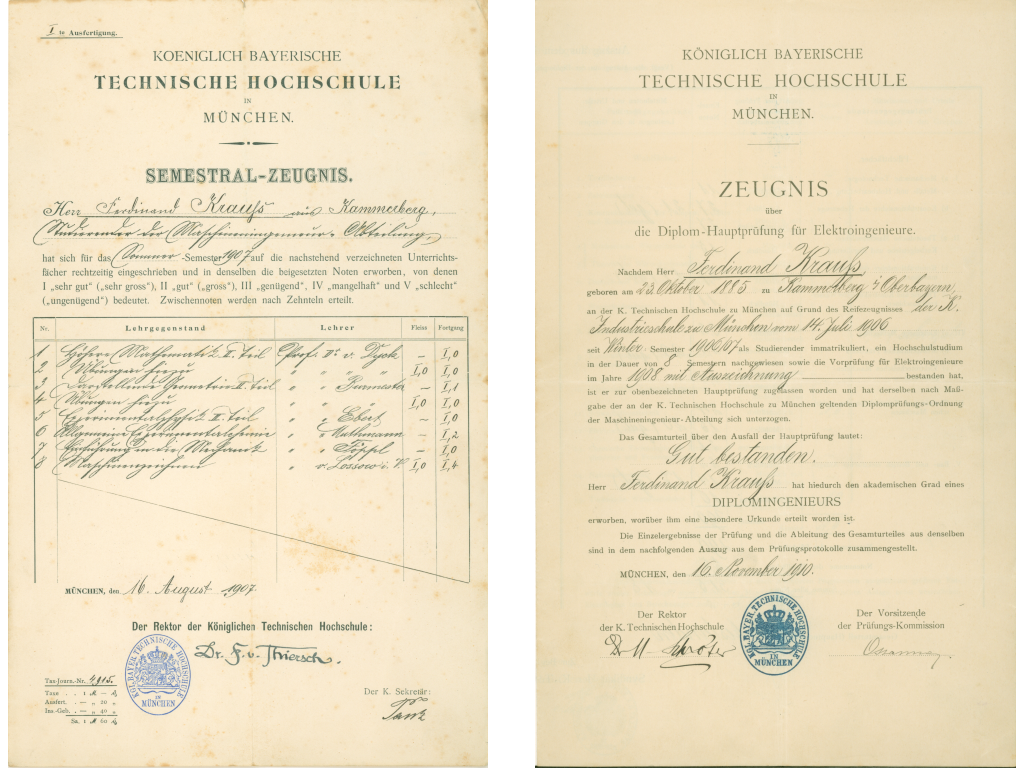 I te Ausfertigung.
KOENIGLICH BAYERISCHE
TECHNISCHE HOCHSCHULE
IN
MÜNCHEN.
SEMESTRAL-ZEUGNIS.
Herr Ferdinand Krauß aus Kammerberg,
Studierender der Maschineningenieur-Abteilung,
hat sich für das Sommer-Semester 1907 auf die nachstehend verzeichneten Unterrichts-
fächer rechtzeitig eingeschrieben und in denselben die beigesetzten Noten erworben, von denen
I „sehr gut“ („sehr gross“), II „gut“ („gross“), III „genügend“, IV „mangelhaft“ und V „schlecht“
(„ungenügend“) bedeutet. Zwischennoten werden nach Zehnteln erteilt.
Nr. Lehrgegenstand Lehrer Fleiss Fortgang
1 Höhere Mathematik II. Teil Prof. Dr. v. Dyck – I,0
2 Übungen hiezu " " " I,0 I,0
3 Darstellende Geometrie II. Teil " " Burmester – I,1
4 Übungen hiezu " " I,0 I,0
5 Experimentalphysik II. Teil " " Ebert – I,0
6 Allgemeine Experimentalchemie " " Muthmann – I,2
7 Einführung in die Mechanik " " Föppl – I,0
8 Maschinenzeichnen " v. Lossow I,0 I,4
MÜNCHEN, den 16. August 1907.
Der Rektor der Königlichen Technischen Hochschule:
Dr. F. v. Thiersch.
KGL. BAYER. TECHNISCHE HOCHSCHULE IN MÜNCHEN
Tax-Journ.-Nr. 4915.
Taxe . . 1 M – S
Ausfert. . – „ 20 „
Ins.-Geb. . – „ 40 „
Sa. 1 M 60 S
Der K. Sekretär:
KÖNIGLICH BAYERISCHE
TECHNISCHE HOCHSCHULE
IN
MÜNCHEN.
ZEUGNIS
über
die Diplom-Hauptprüfung für Elektroingenieure.
Nachdem Herr Ferdinand Krauß,
geboren am 23. Oktober 1885 zu Kammerberg i/Oberbayern,
an der K. Technischen Hochschule zu München auf Grund des Reifezeugnisses der K.
Industrieschule zu München vom 14. Juli 1906
seit Winter-Semester 1906/07 als Studierender immatrikuliert, ein Hochschulstudium
in der Dauer von 8 Semestern nachgewiesen sowie die Vorprüfung für Elektroingenieure
im Jahre 1908 mit Auszeichnung bestanden hat,
ist er zur obenbezeichneten Hauptprüfung zugelassen worden und hat derselben nach Maß-
gabe der an der K. Technischen Hochschule zu München geltenden Diplomprüfungs-Ordnung
der Maschineningenieur-Abteilung sich unterzogen.
Das Gesamturteil über den Ausfall der Hauptprüfung lautet:
Gut bestanden.
Herr Ferdinand Krauß hat hiedurch den akademischen Grad eines
DIPLOMINGENIEURS
erworben, worüber ihm eine besondere Urkunde erteilt worden ist.
Die Einzelergebnisse der Prüfung und die Ableitung des Gesamturteiles aus denselben
sind in dem nachfolgenden Auszug aus dem Prüfungsprotokolle zusammengestellt.
MÜNCHEN, den 16. November 1910.
Der Rektor
der K. Technischen Hochschule
Dr M Schröter
KGL. BAYER. TECHNISCHE HOCHSCHULE IN MÜNCHEN
Der Vorsitzende
der Prüfungs-Kommission